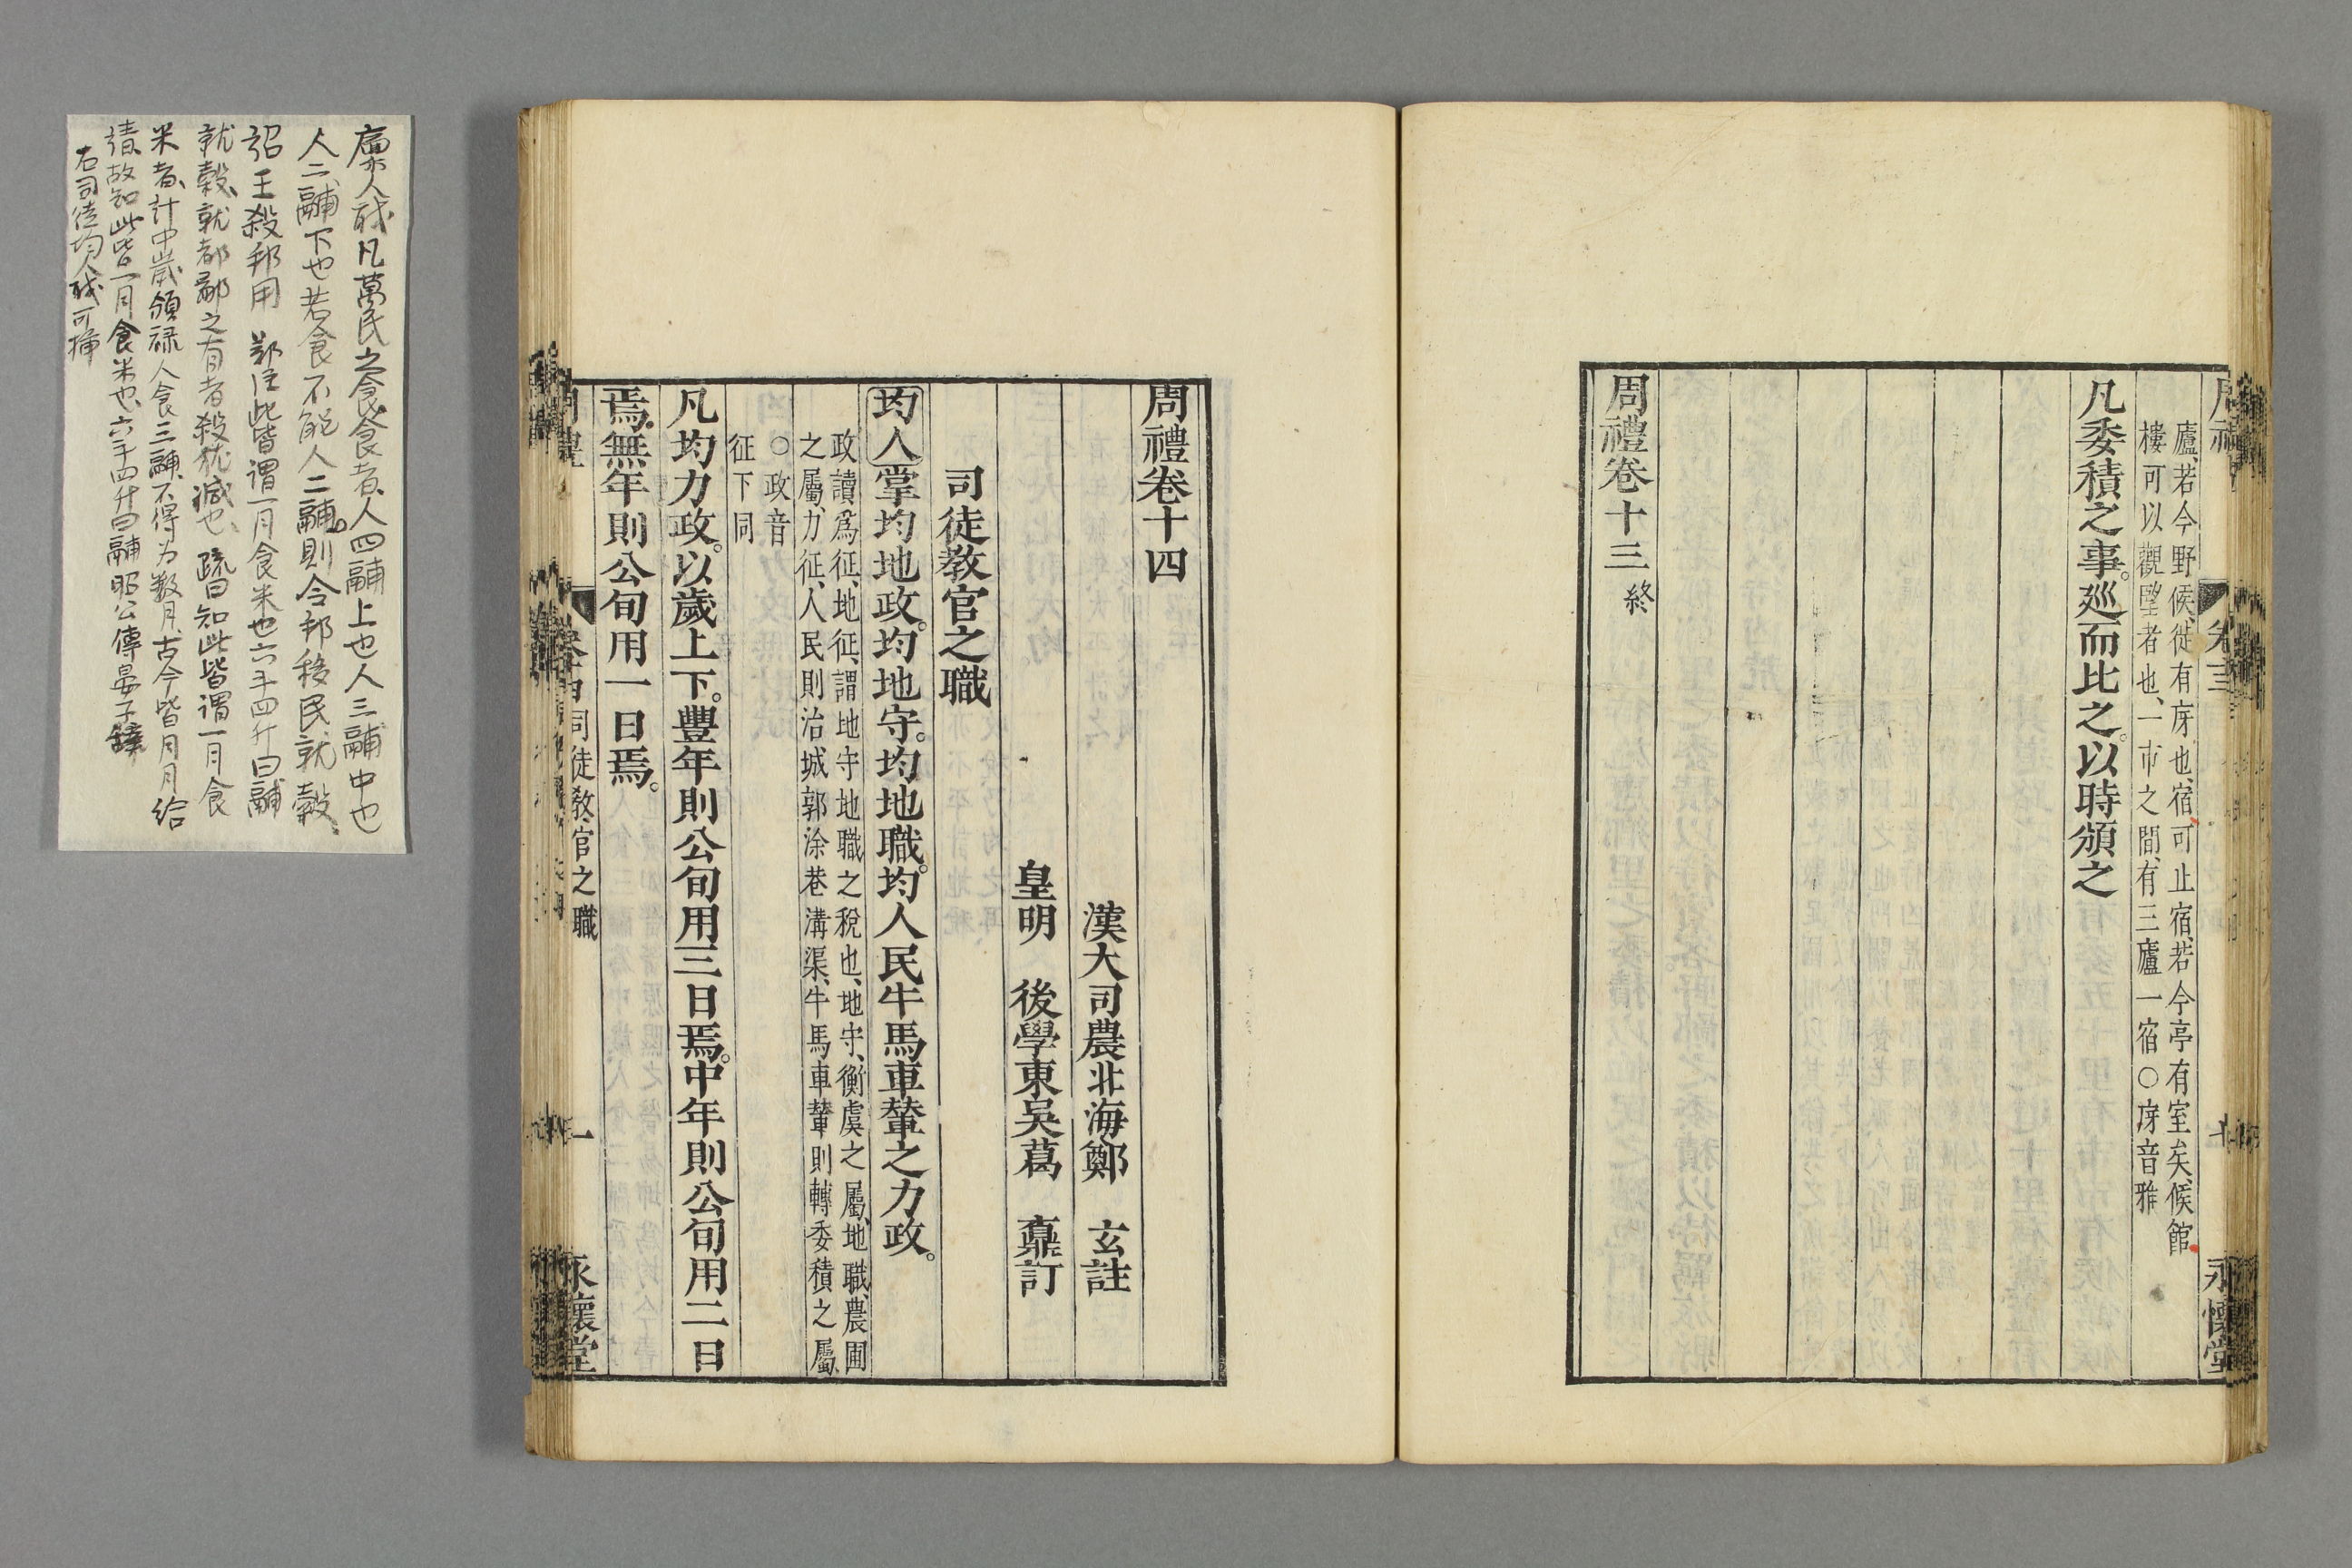 廬若今野候、徙有庌也、宿、可止宿、若今亭有室矣、候館
樓可以觀望者也、一市之間、有三廬一宿○庌音雅
凡委積之事。巡而比之。以時頒之
周禮卷十三 終
永懷堂
周禮卷十四
漢大司農北海鄭 玄註
皇明 後學東吳葛 鼒訂
司徒教官之職
均人掌均地政。均地守。均地職。均人民牛馬車輦之力政。
政讀爲征、地征、謂地守地職之稅也、地守、衡虞之屬、地職、農圃
之屬、力征、人民則治城郭涂巷溝渠、牛馬車輦則轉委積之屬、
○政音
征下同
凡均力政。以歲上下。豐年則公旬用三日焉。中年則公旬用二日
焉。無年則公旬用一日焉。
司徒教官之職
一
永懷堂
廩人職凡萬民之食食者人四鬴上也人三鬴中也
人二鬴下也若食不能人二鬴則令邦移民就穀
詔王殺邦用 鄭注此皆謂一月食米也六斗四升曰鬴
就穀、就都鄙之有者殺猶減也、疏曰知此皆謂一月食
米者、計中歲頒祿人食三鬴、不得为数月、古今皆月月給
請、故知此皆一月食米也、六斗四升曰鬴昭公傳晏子辭
右司徒均人職可揷